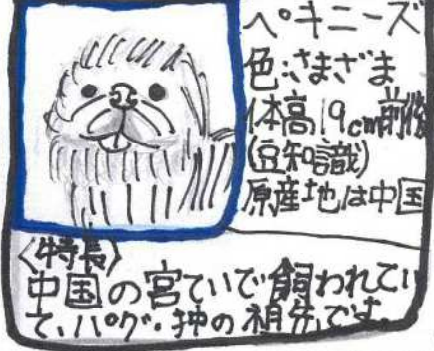 ペキニーズ
色:さまざま
体高19cm前後
(豆知識)
原産地は中国
〈特長〉
中国の宮ていで飼われてい
て、パグ・狆の祖先です。